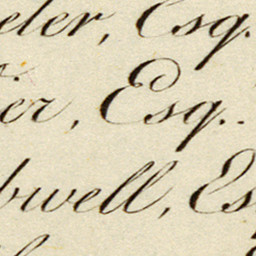 eler, Esq.
ier, Esq..
bwell, Es